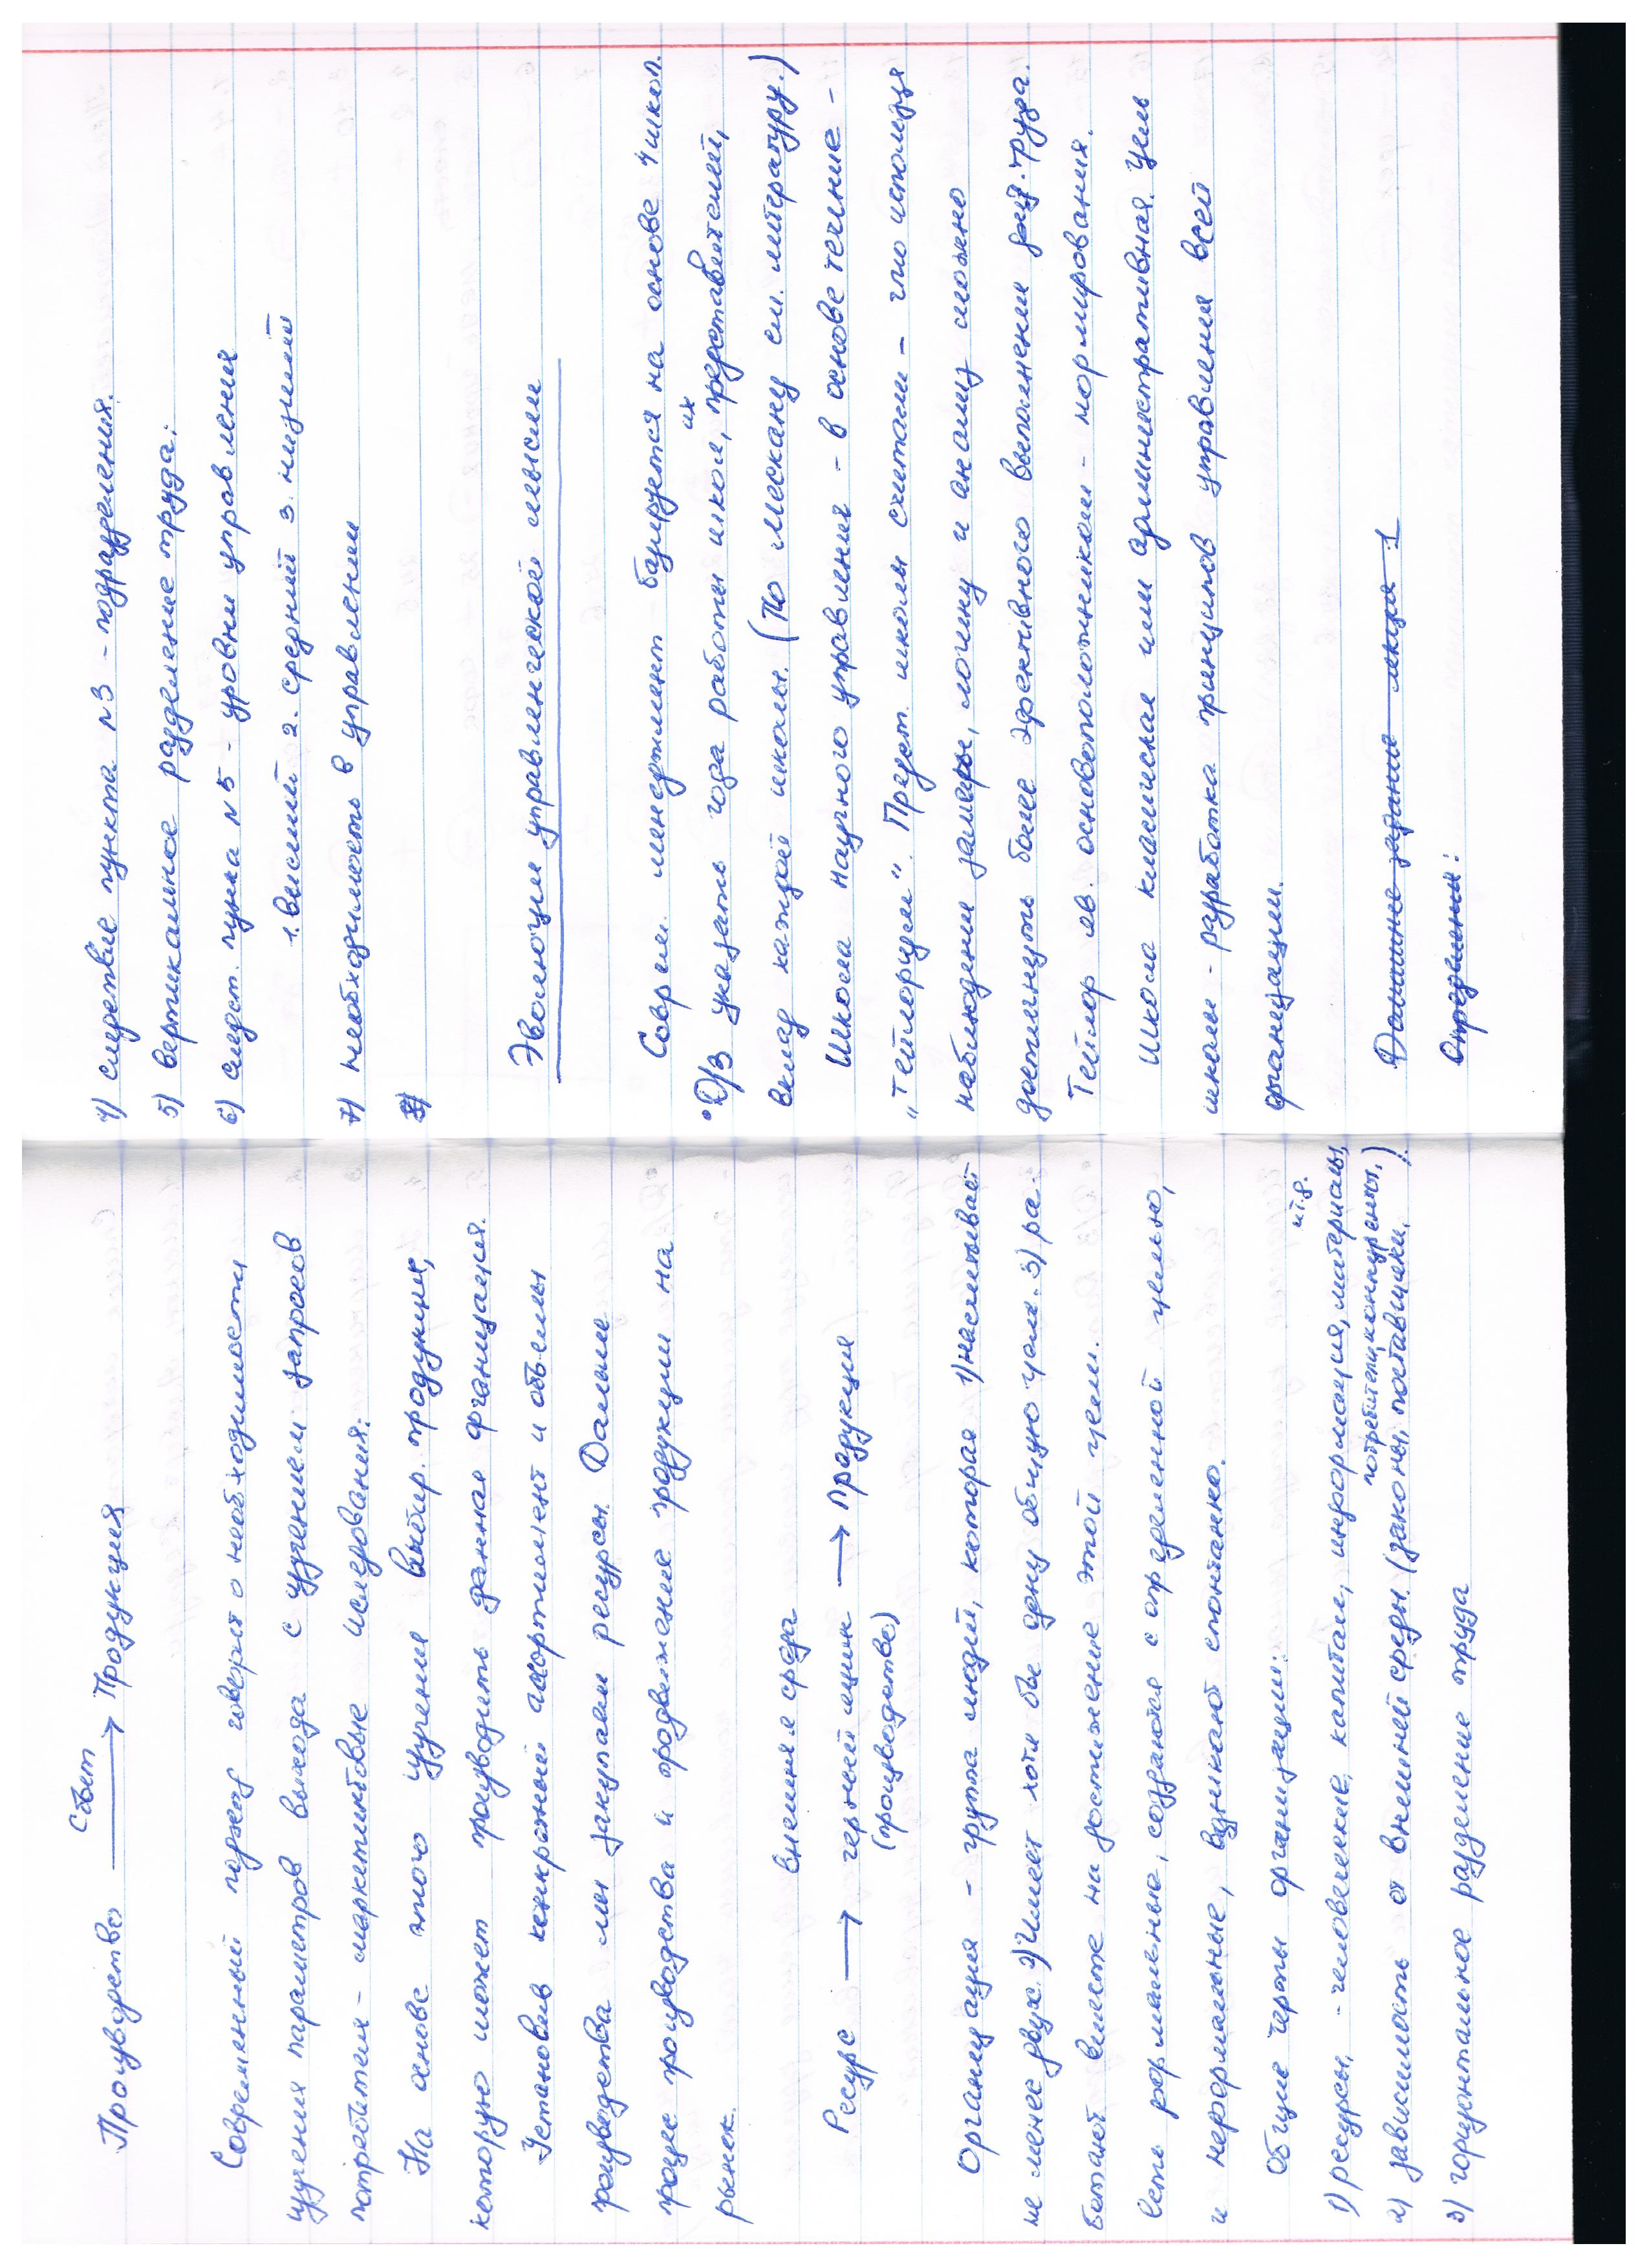 Сбыт
Производство ⟶ Продукция
Современный подход говорит о необходимости
изучения параметров выхода с изучением запросов
потребителя – маркетинговые иследования.
На основе этого изучения выбир. продукция,
которую может производить данная организация.
Установив конкретный ассортимент и объемы
производства мы закупаем ресурсы. Дальше
процес производства и продвижение продукции на
рынок.
внешняя среда
Ресурс ⟶ черный ящик ⟶ продукция
(производство)
Организация – группа людей, которая 1) насчитывает
не менее двух. 2) Имеет хотя бы одну общую цель. 3) ра-
ботают вместе на достижение этой цели.
Есть формальные, создаются с определенной целью,
и неформальные, возникают спонтанно.
Общие черты организации:
и т.д.
1) ресурсы, - человеческие, капитал, информация, материалы,
потребители, конкуренты.)
2) зависимость от внешней среды. (законы, поставщики,
3) горизонтальное разделение труда
4) следствие пункта №3 – подразделения.
5) вертикальное разделение труда:
6) следст. пунка №5 – уровни управления
1. высший 2. средний 3. низший
7) необходимость в управлении
8)
Эволюции управленческой мысли
Соврем. менеджмент базируется на основе 4 школ.
их
Д/З указать года работы школ, представителей,
вклад каждой школы. (По Мескану см. литературу.)
Школа научного управления – в основе течение –
"Тейлоризм". Предст. школы считали – что используя
наблюдения замеры, логику и анализ можно
достигнуть более эфективного выполнения труда.
Тейлор яв. основоположником – нормирования.
Школа класическая или административная. Цель
школы - разработка принципов управления всей
организации.
Домашнее задание лекция 1
Определения: